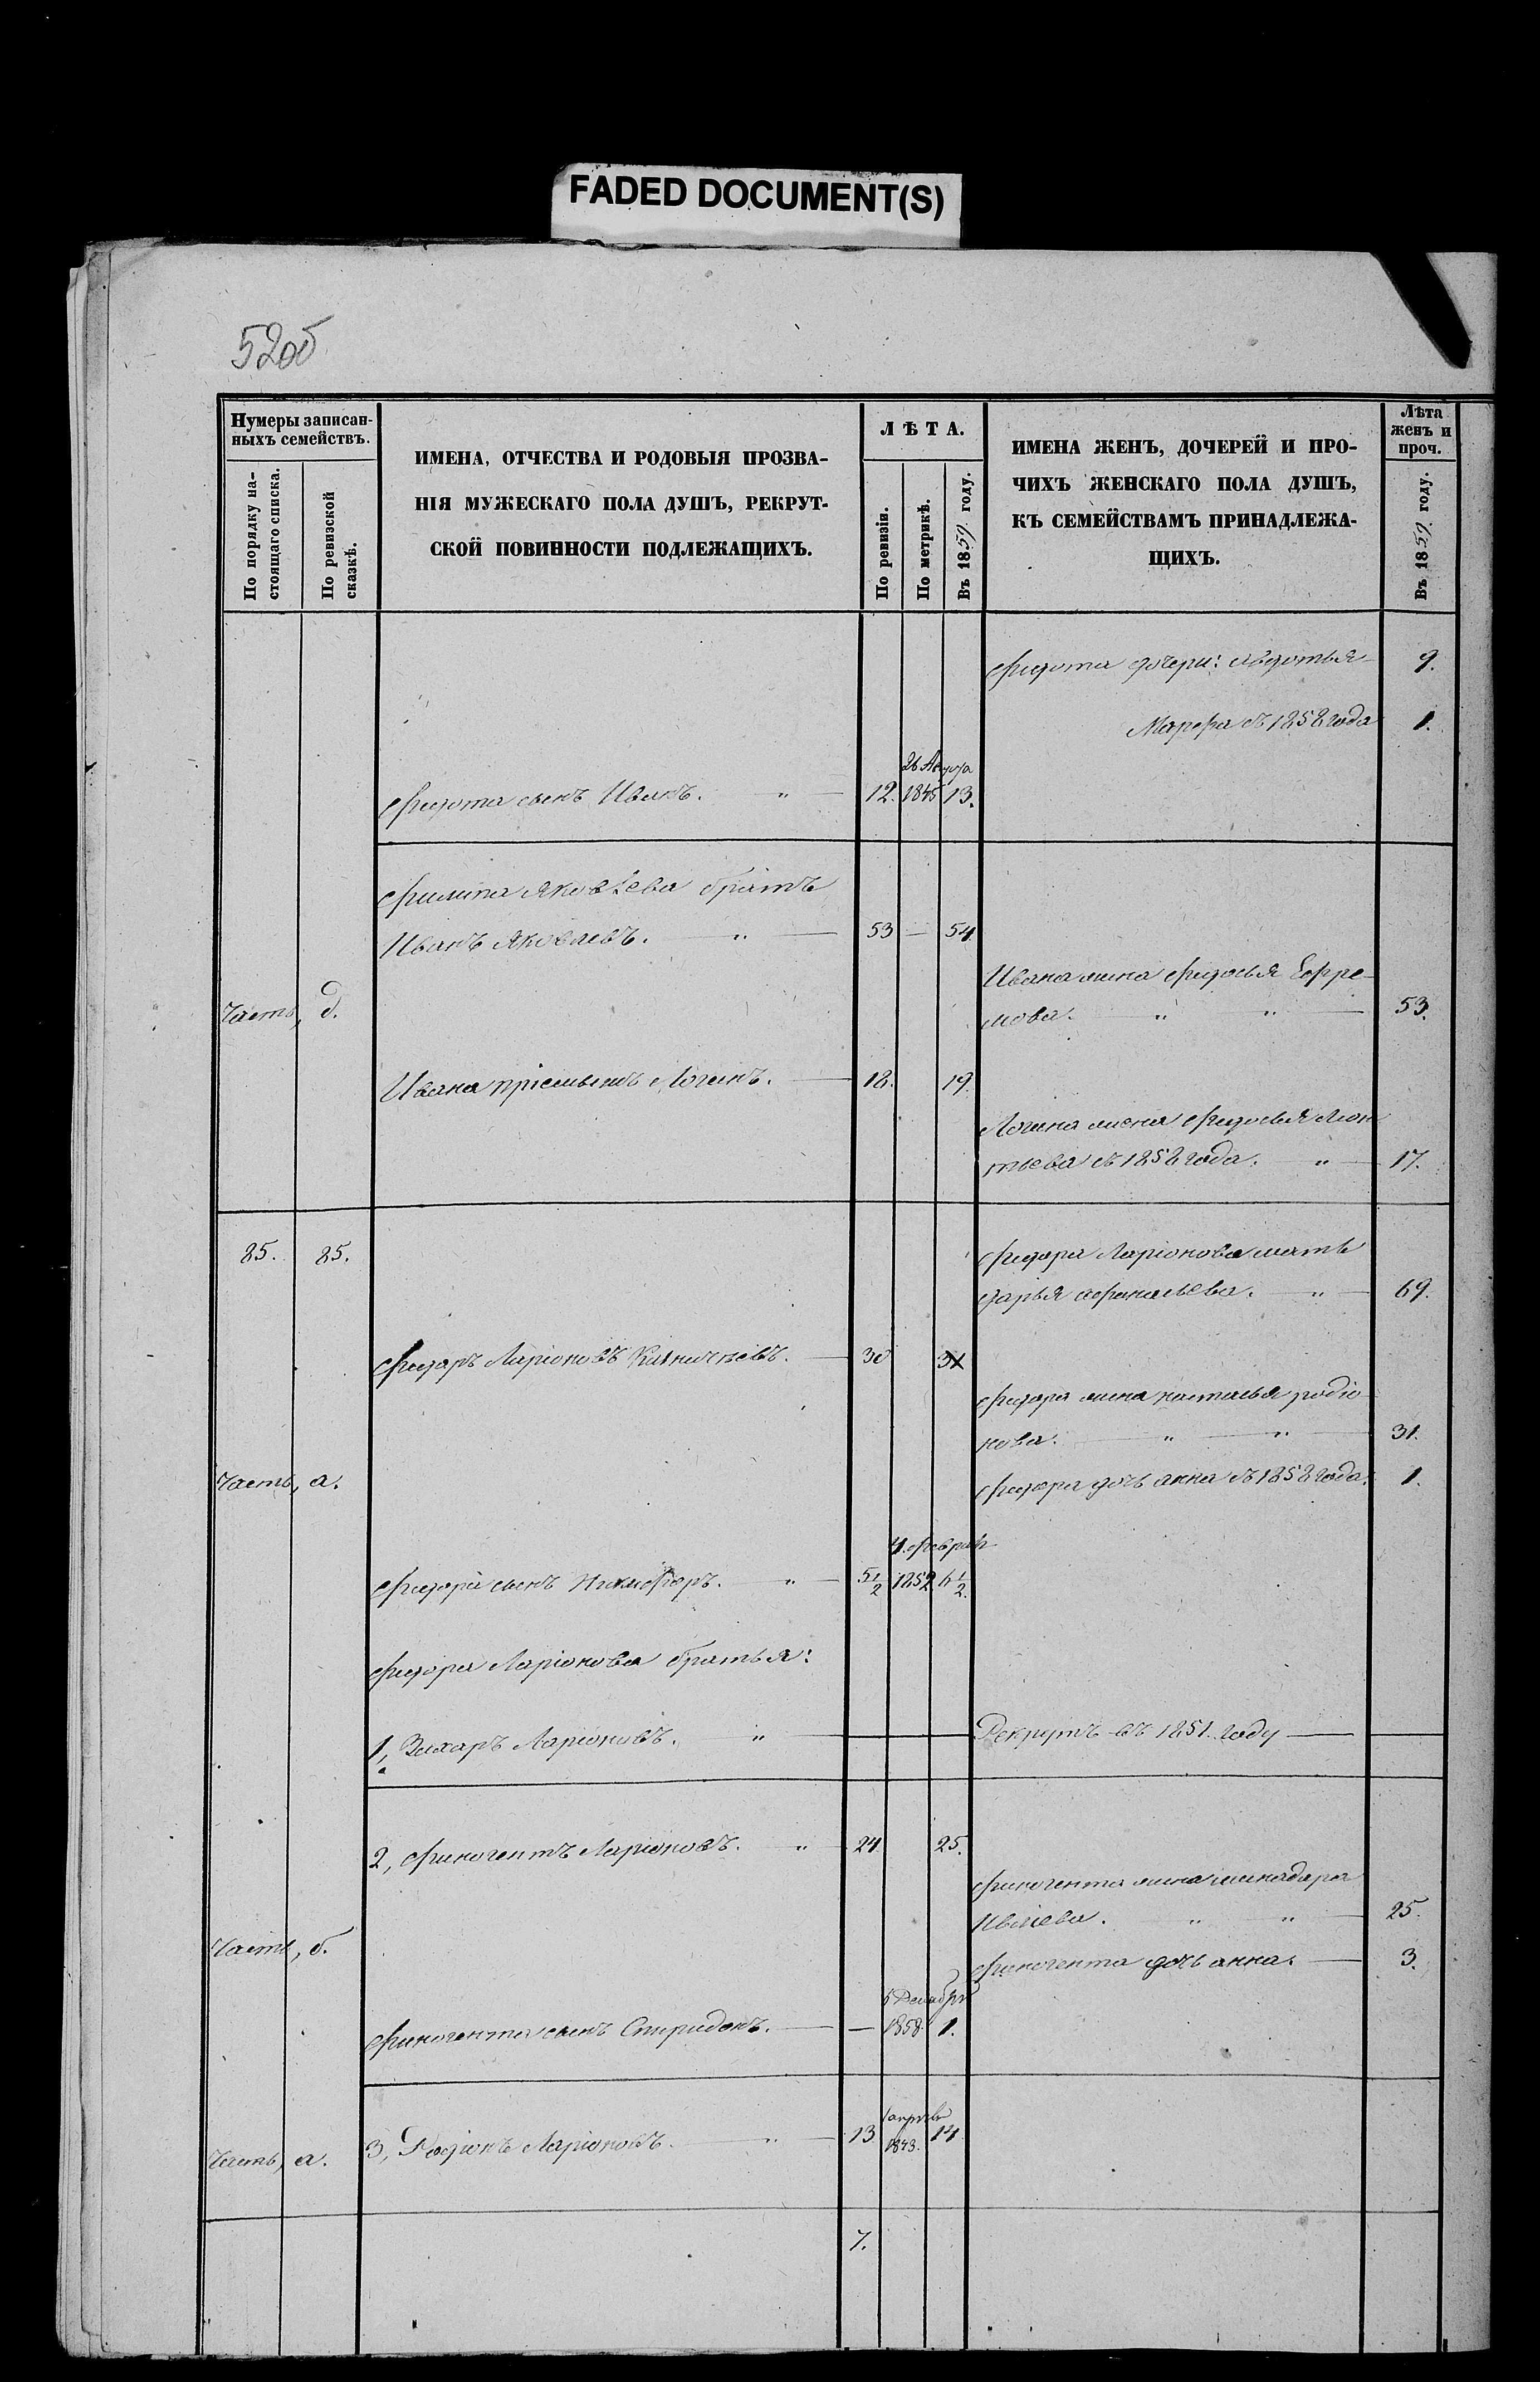 FADED DOCUMENT(S)
52об
Нумеры записан-
ныхъ семействъ.
По порядку на-
стоящаго списка.
По ревизской
сказкѣ.
ИМЕНА, ОТЧЕСТВА И РОДОВЫЯ ПРОЗВА-
НІЯ МУЖЕСКАГО ПОЛА ДУШЪ, РЕКРУТ-
СКОЙ ПОВИННОСТИ ПОДЛЕЖАЩИХЪ.
ЛѢТА.
По ревизіи.
По метрикѣ.
Въ 1859 году.
ИМЕНА ЖЕНЪ, ДОЧЕРЕЙ И ПРО-
ЧИХЪ ЖЕНСКАГО ПОЛА ДУШЪ,
КЪ СЕМЕЙСТВАМЪ ПРИНАДЛЕЖА-
ЩИХЪ.
Лѣта
женъ и
проч.
Въ 1859 году.
Федота дочери: Авдотья 9.
Марфа съ 1858 года 1.
26 Августа
Федота сынъ Иванъ. " 12. 1845 13.
Филипа Яковлева братъ
Иванъ Яковлевъ. " 53 — 54
Ивана жена Федосья Ефре-
мова. " " 53.
Часть, д.
Ивана пріемышъ Логинъ. 18. 19.
Логина жена Федосья Леон
тьева съ 1858 года. " 17.
85. 85.
Федора Ларіонова мать
Дарья Афанасьева. " 69.
Федоръ Ларіоновъ 30 31
Федора жена Настасья Родіо-
нова. " " 31.
Часть, а.
Федора дочь Анна съ 1858 года. 1.
4. Февраля
Федора сынъ Никифоръ. " 5 1/2 1852 6 1/2.
Федора Ларіонова братья:
1, Захаръ Ларіоновъ. " Рекрутъ въ 1851. году
2, Финогентъ Ларіоновъ. " 24 25.
Финогента жена Минадора
Ивлева. " " 25.
Часть, б.
Финогента дочь Анна. 3.
6 Декабря
Финогента сынъ Спиридонъ. — 1858. 1.
Апрѣля
Часть, а. 3, Родіонъ Ларіоновъ. " 13 1843. 14
7.